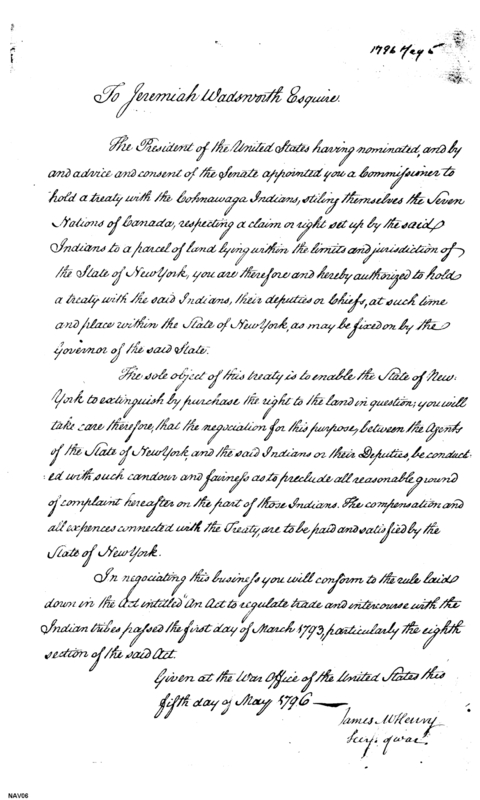 1796 May 5
To Jeremiah Wadsworth Esquire.
The President of the United States having nominated, and by
and advice and consent of the Senate appointed you a Commissioner to
hold a treaty with the Cohnawaga Indians, stiling themselves the Seven
Nations of Canada, respecting a claim or right set up by the said
Indians to a parcel of land lying within the limits and jurisdiction of
the State of New York, you are therefore and hereby authorized to hold
a treaty with the said Indians, their deputies or Chiefs, at such time
and place within the State of New York, as may be fixed on by the
Governor of the said State.
The sole object of this treaty is to enable the State of New-
York to extinguish by purchase the right to the land in question; you will
take care therefore, that the negociation for this purpose, between the Agents
of the State of New York, and the said Indians or their Deputies, be conduct-
:ed with such candour and fairness as to preclude all reasonable ground
of complaint hereafter on the part of those Indians. The compensation and
all expences connected with the Treaty, are to be paid and satisfied by the
State of New York.
In negociating this business you will conform to the rule laid
down in the Act intitled "An Act to regulate trade and intercourse with the
Indian tribes passed the first day of March 1793, particularly the eighth
section of the said Act.
Given at the War Office of the United States this
fifth day of May 1796—
James McHenry
Secy. of war.
NAV06